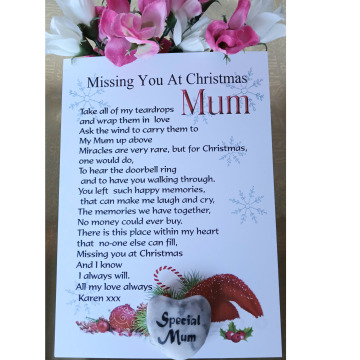 Missing You At Christmas
Mum
Take all of my teardrops
and wrap them in love
Ask the wind to carry them to
My Mum up above
Miracles are very rare, but for Christmas,
one would do,
To hear the doorbell ring
and to have you walking through.
You left such happy memories,
that can make me laugh and cry,
The memories we have together,
No money could ever buy.
There is this place within my heart
that no-one else can fill,
Missing you at Christmas
And I know
I always will.
All my love always
Karen xxx
Special
Mum